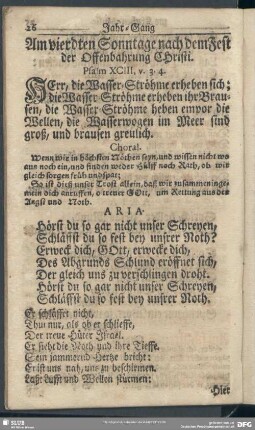 26 Jahr-Gang
Am vierdten Sonntage nach dem Fest
der Offenbahrung Christi.
Psalm XCIII. v. 3. 4.
HErr, die Wasser-Ströhme erheben sich;
die Wasser-Ströhme erheben ihr Brau-
sen, die Wasser Ströhme heben empor die
Wellen, die Wasserwogen im Meer sind
groß, und brausen greulich.
Choral.
Wenn wir in höchsten Nöthen seyn, und wissen nicht wo
aus noch ein, und finden weder Hülff noch Rath, ob wir
gleich sorgen früh und spat;
So ist diß unser Trost allein, daß wir zusammen inge-
mein dich anruffen, o treuer GOtt, um Rettung aus der
Angst und Noth.
ARIA.
Hörst du so gar nicht unser Schreyen,
Schläffst du so fest bey unsrer Noth?
Erweck dich, GOtt, erwecke dich,
Des Abgrunds Schlund eröffnet sich,
Der gleich uns zu verschlingen droht.
Hörst du so gar nicht unser Schreyen,
Schläffst du so fest bey unsrer Noth.
Er schläffet nicht,
Thut nur, als ob er schlieffe,
Der treue Hüter Israel.
Er sieht die Noth und ihre Tieffe.
Sein jammernd Hertze bricht:
Er ist uns nah, uns zu beschirmen.
Laßt Lufft und Wellen stürmen:
Hier
SLUB
DFG